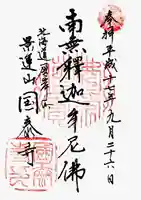 奉拝 平成十七年九月二十六日
南無釋迦牟尼佛
北海道厚岸
景運山 国泰寺